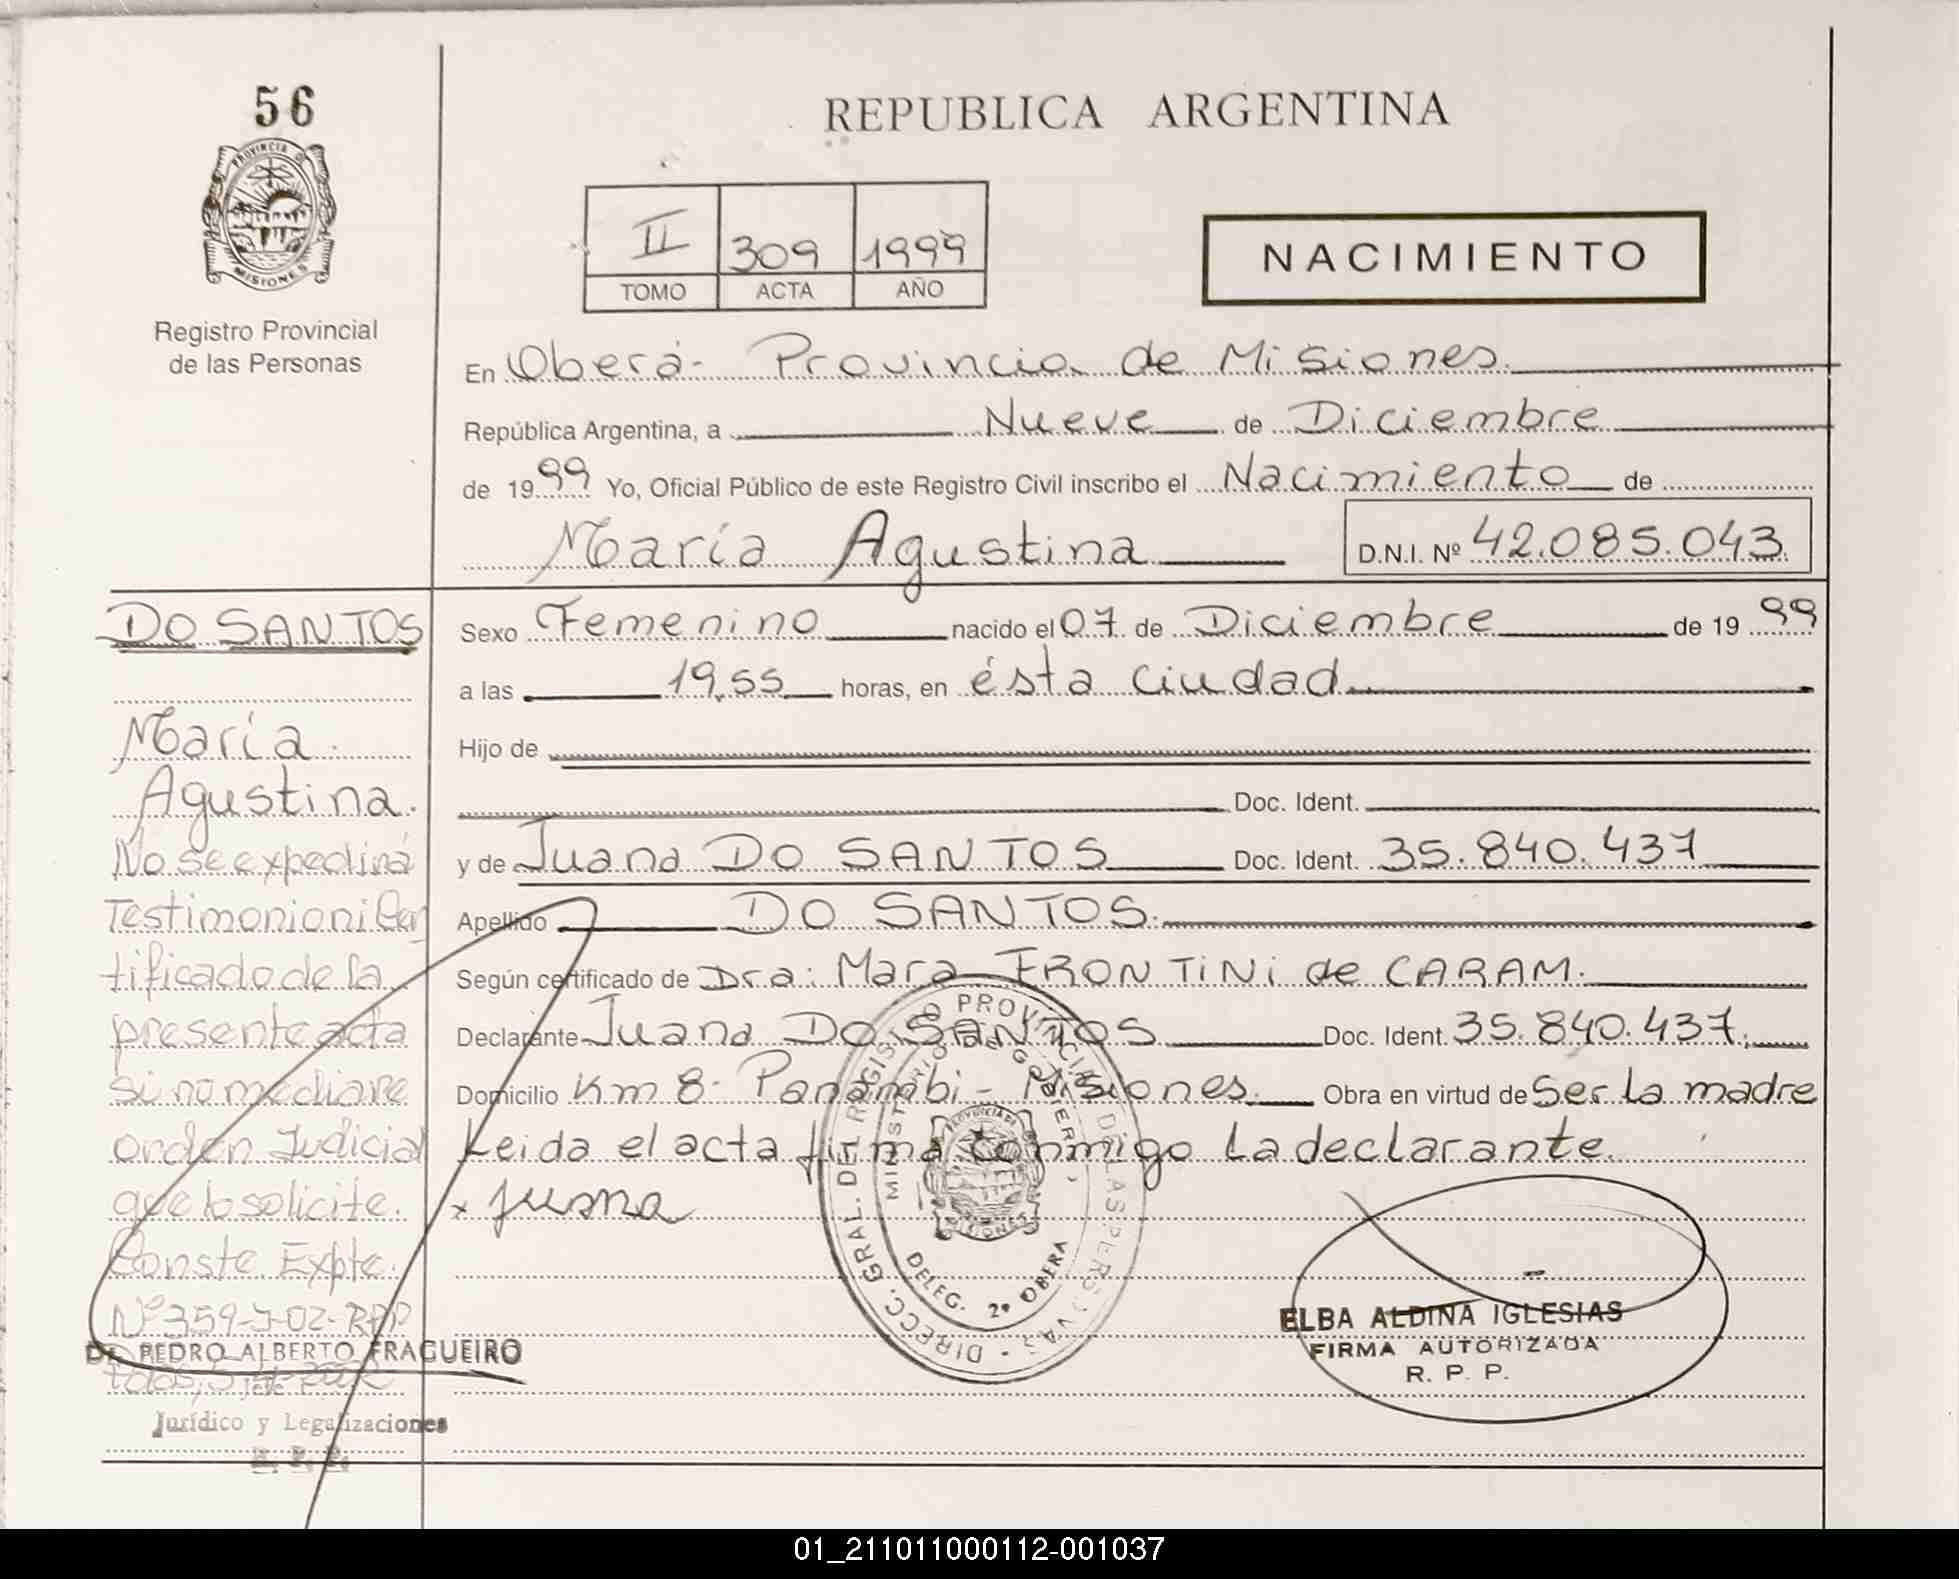 56
PROVINCIA D
MISIONES
Registro Provincial
de las Personas
REPUBLICA ARGENTINA
II 309 1999
TOMO ACTA AÑO
NACIMIENTO
En Oberá- Provincia de Misiones.
República Argentina, a Nueve de Diciembre
de 1999 Yo, Oficial Público de este Registro Civil inscribo el Nacimiento de
María Agustina D.N.I. Nº 42.085.043
DO SANTOS
María
Agustina.
No se expedirá
Testimonio ni Cer
tificado de la
presente acta
si no mediare
orden Judicial
que lo solicite.
Conste. Expte.
Nº 359-J-02-RPP
Dr. PEDRO ALBERTO FRAGUEIRO
Jefe
Jurídico y Legalizaciones
R. P. P.
Sexo Femenino nacido el 07 de Diciembre de 1999
a las 19,55 horas, en ésta ciudad.
Hijo de
Doc. Ident.
y de Juana DO SANTOS Doc. Ident. 35.840.437
Apellido DO SANTOS.
Según certificado de Dra: Mara FRONTINI de CARAM.
Declarante Juana DO SANTOS Doc. Ident. 35.840.437.
Domicilio Km 8- Panambi- Misiones. Obra en virtud de Ser la madre
Leida el acta firma conmigo la declarante.
x Juana
DIRECC. GRAL. DEL REGISTRO PROVINCIAL DE LAS PERSONAS
MINISTERIO DE GOBIERNO
PROVINCIA DE
MISIONES
DELEG. 2ª OBERA
ELBA ALDINA IGLESIAS
FIRMA AUTORIZADA
R. P. P.
01_211011000112-001037